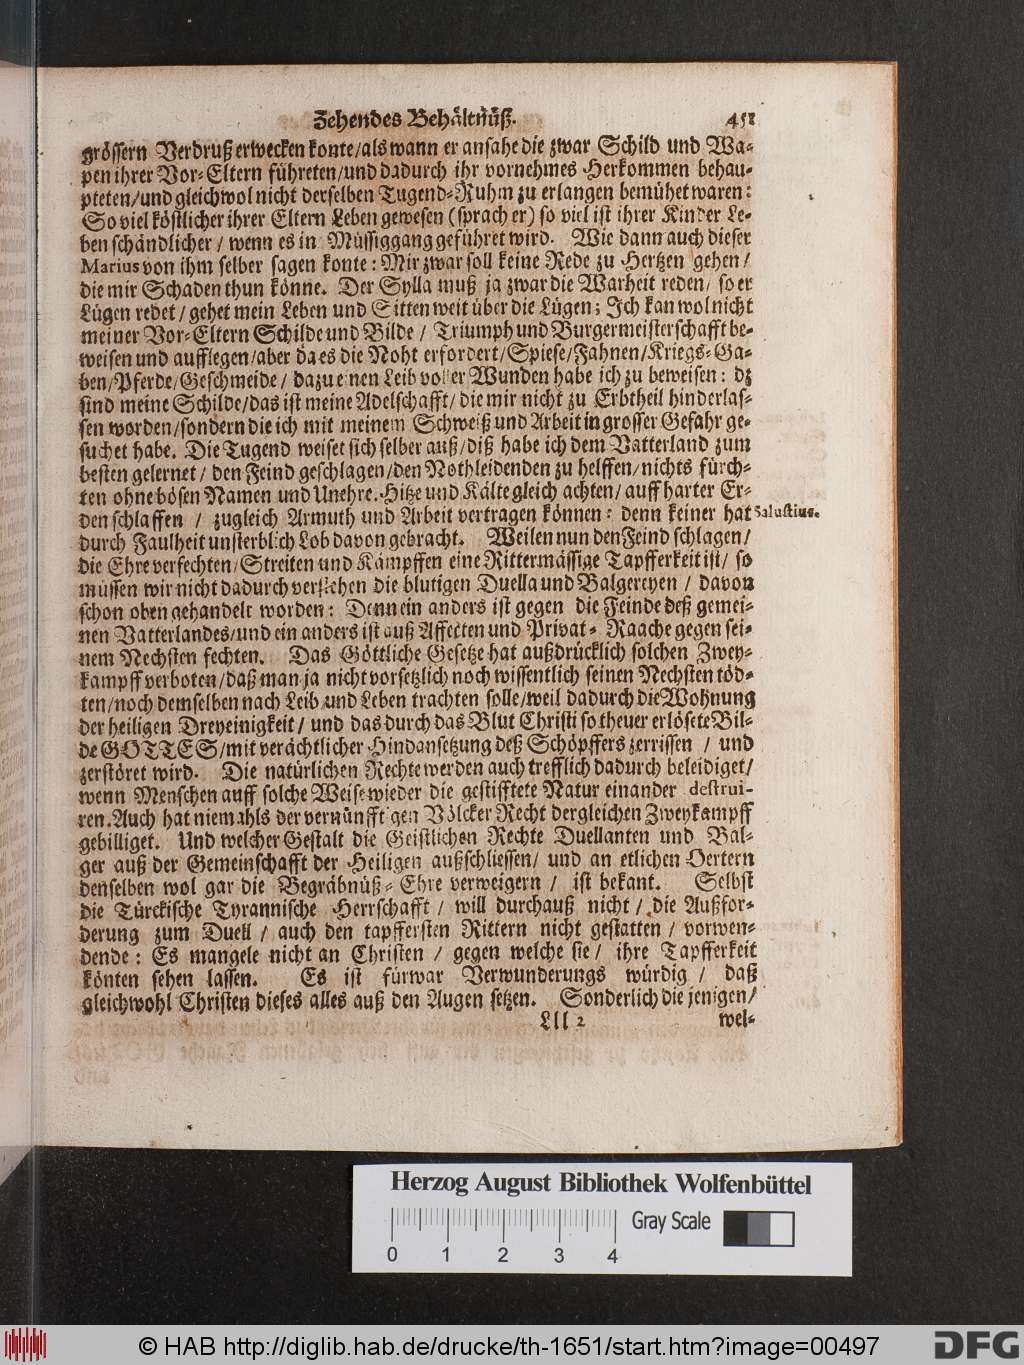 Zehendes Behältnüß. 451
grössern Verdruß erwecken konte/als wann er ansahe die zwar Schild und Wa-
pen ihrer Vor-Eltern führeten/und dadurch ihr vornehmes Herkommen behau-
pteten/und gleichwol nicht derselben Tugend-Ruhm zu erlangen bemühet waren:
So viel köstlicher ihrer Eltern Leben gewesen (sprach er) so viel ist ihrer Kinder Le-
ben schändlicher / wenn es in Müssiggang geführet wird. Wie dann auch dieser
Marius von ihm selber sagen konte: Mir zwar soll keine Rede zu Hertzen gehen/
die mir Schaden thun könne. Der Sylla muß ja zwar die Warheit reden/ so er
Lügen redet/ gehet mein Leben und Sitten weit über die Lügen; Ich kan wol nicht
meiner Vor-Eltern Schilde und Bilde / Triumph und Burgermeisterschafft be-
weisen und aufflegen/aber da es die Noht erfordert/Spiese/Fahnen/Kriegs-Ga-
ben/Pferde/Geschmeide / dazu einen Leib voller Wunden habe ich zu beweisen: dz
sind meine Schilde/das ist meine Adelschafft/die mir nicht zu Erbtheil hinderlas-
sen worden/sondern die ich mit meinem Schweiß und Arbeit in grosser Gefahr ge-
suchet habe. Die Tugend weiset sich selber auß/diß habe ich dem Vatterland zum
besten gelernet / den Feind geschlagen/den Nothleidenden zu helffen/nichts fürch-
ten ohne bösen Namen und Unehre. Hitze und Kälte gleich achten/auff harter Er-
den schlaffen / zugleich Armuth und Arbeit vertragen können: denn keiner hat Salustius.
durch Faulheit unsterblich Lob davon gebracht. Weilen nun den Feind schlagen/
die Ehre verfechten/Streiten und Kämpffen eine Rittermässige Tapfferkeit ist/ so
müssen wir nicht dadurch verstehen die blutigen Duella und Balgereyen / davon
schon oben gehandelt worden: Denn ein anders ist gegen die Feinde deß gemei-
nen Vatterlandes/und ein anders ist auß Affecten und Privat-Raache gegen sei-
nem Nechsten fechten. Das Göttliche Gesetze hat außdrücklich solchen Zwey-
kampff verboten/daß man ja nicht vorsetzlich noch wissentlich seinen Nechsten töd-
ten/noch demselben nach Leib und Leben trachten solle/weil dadurch die Wohnung
der heiligen Dreyeinigkeit/ und das durch das Blut Christi so theuer erlösete Bil-
de GOTTES/mit verächtlicher Hindansetzung deß Schöpffers zerrissen / und
zerstöret wird. Die natürlichen Rechte werden auch trefflich dadurch beleidiget/
wenn Menschen auff solche Weise wieder die gestifftete Natur einander destrui-
ren. Auch hat niemahls der vernünfftigen Völcker Recht dergleichen Zweykampff
gebilliget. Und welcher Gestalt die Geistlichen Rechte Duellanten und Bal-
ger auß der Gemeinschafft der Heiligen außschliessen/ und an etlichen Oertern
denselben wol gar die Begräbnüß-Ehre verweigern / ist bekant. Selbst
die Türckische Tyrannische Herrschafft / will durchauß nicht / die Außfor-
derung zum Duell / auch den tapffersten Rittern nicht gestatten / vorwen-
dende: Es mangele nicht an Christen / gegen welche sie/ ihre Tapfferkeit
könten sehen lassen. Es ist fürwar Verwunderungs würdig / daß
gleichwohl Christen dieses alles auß den Augen setzen. Sonderlich die jenigen/
Lll 2 wel-
Herzog August Bibliothek Wolfenbüttel
Gray Scale
0 1 2 3 4
© HAB http://diglib.hab.de/drucke/th-1651/start.htm?image=00497
DFG